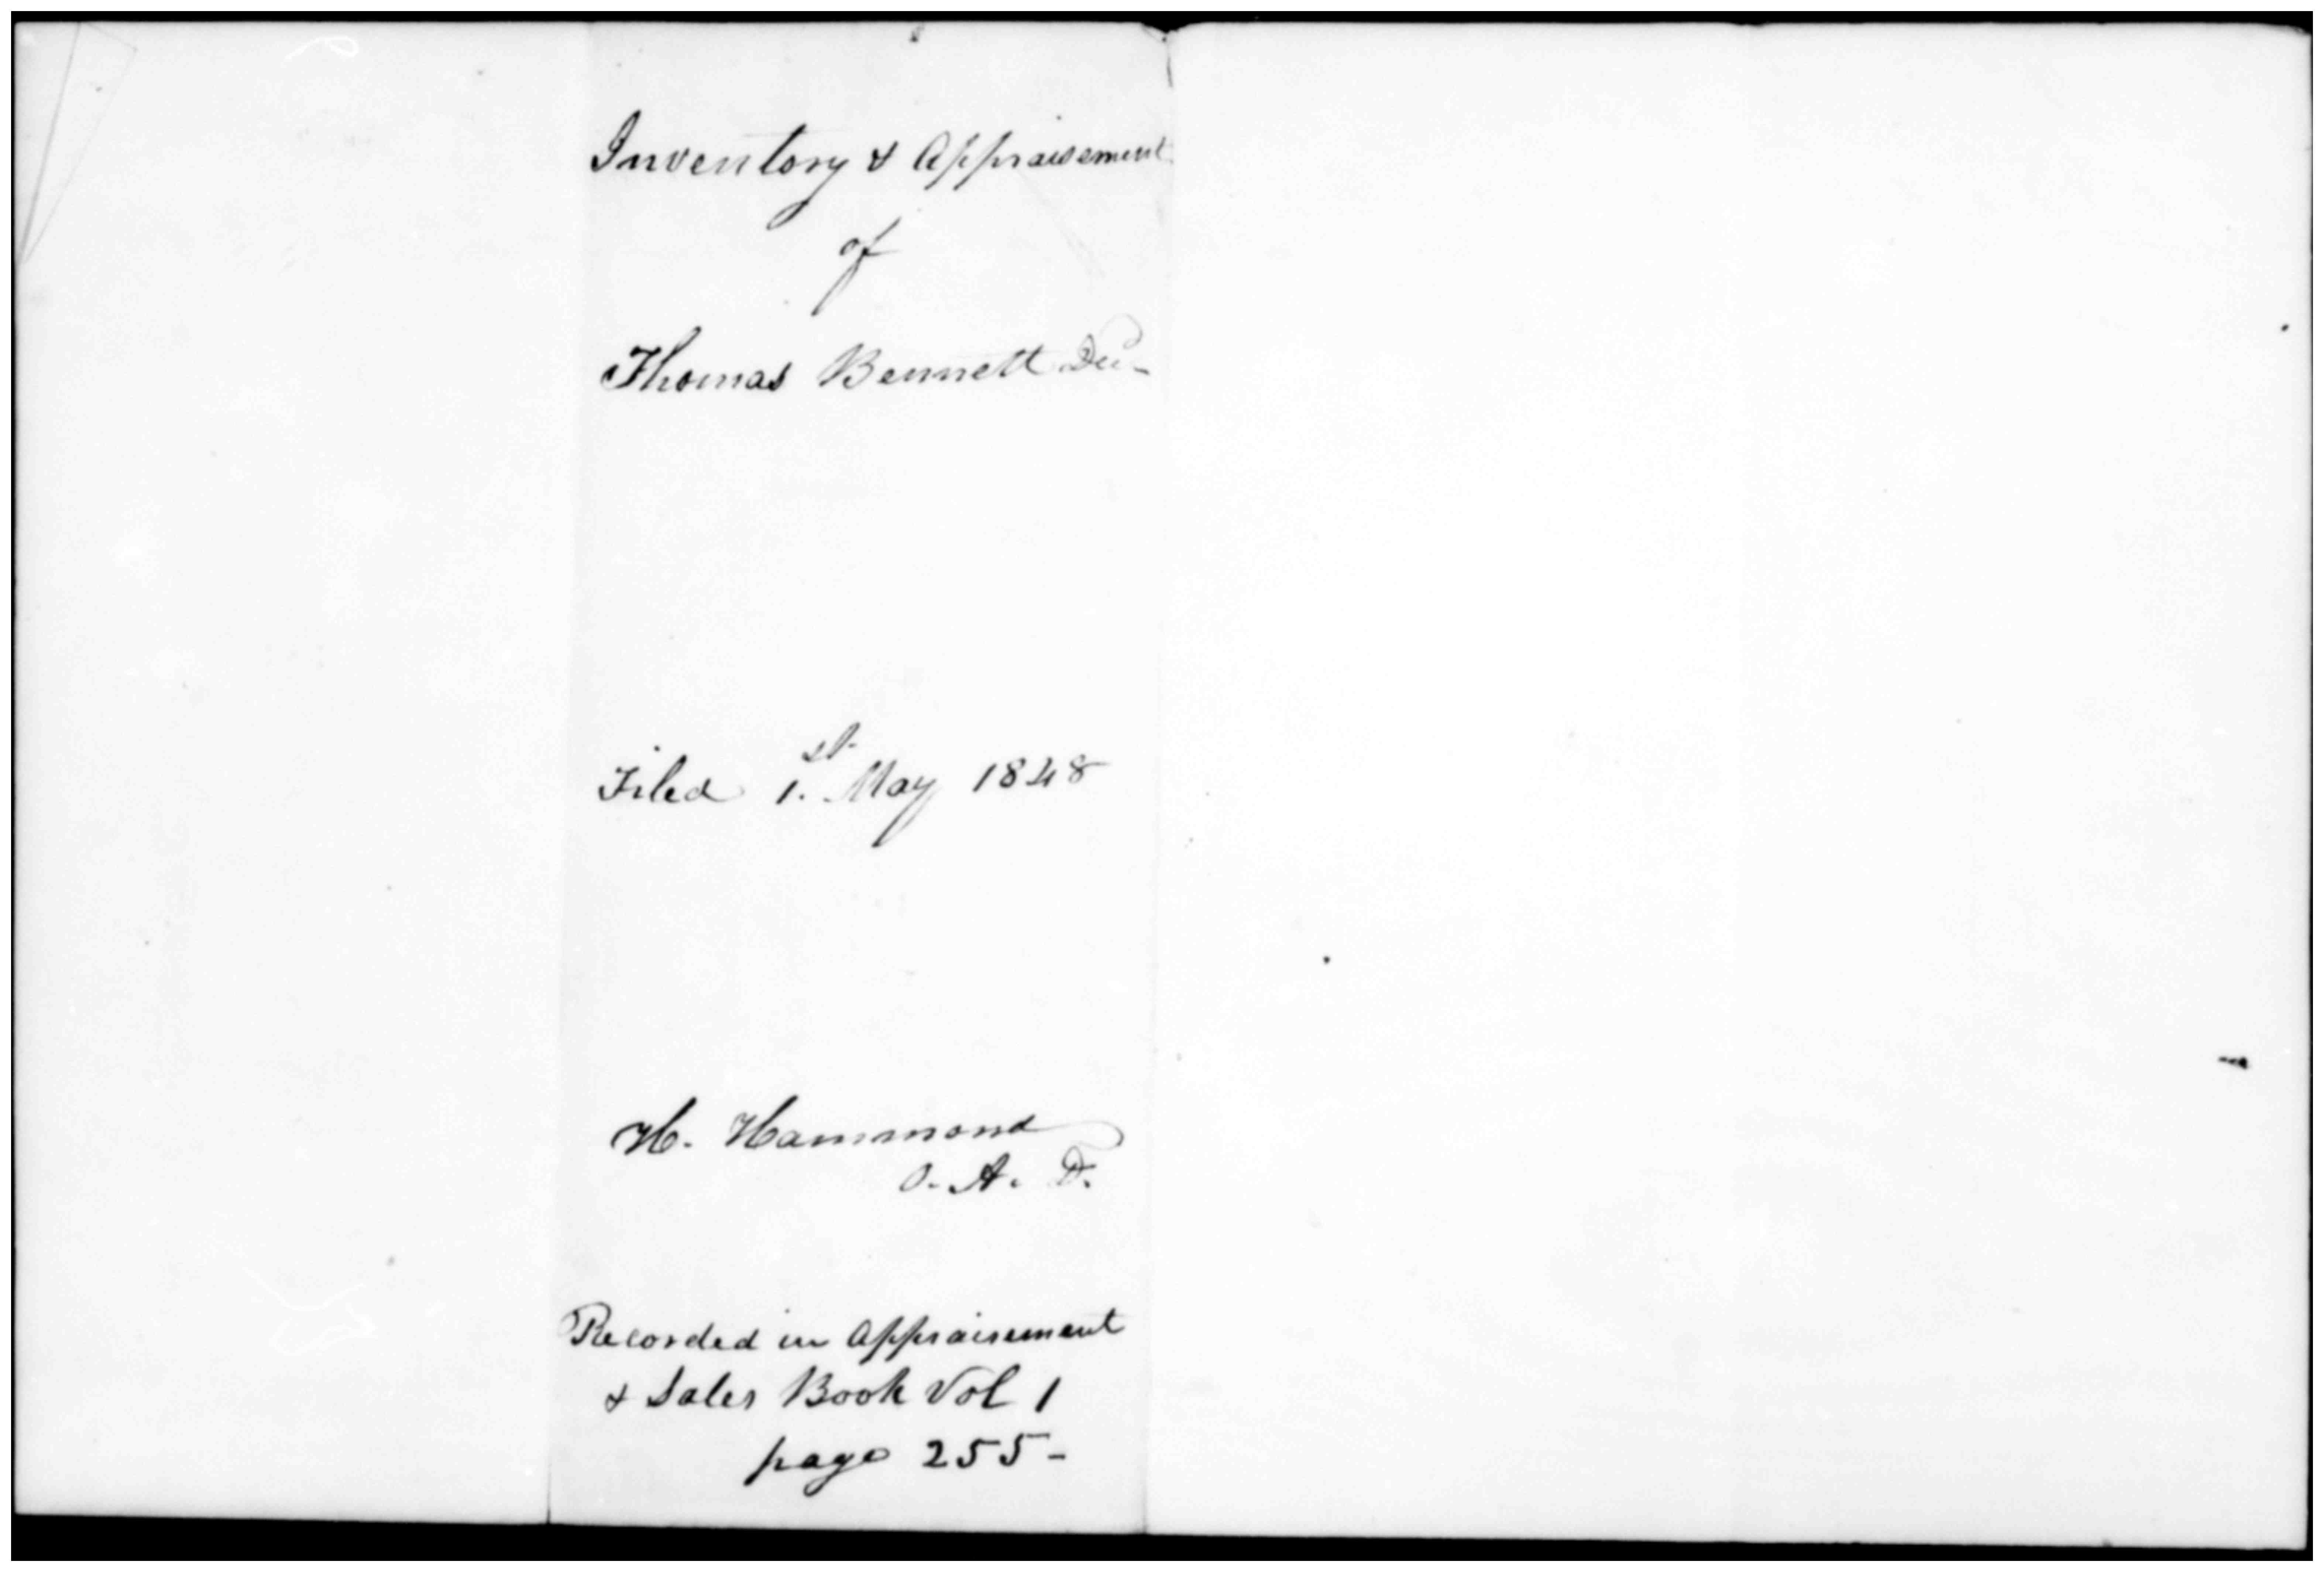 Inventory & Appraisement
of
Thomas Bennett Dec-
Filed 1.st May 1848
H. Hammond
O. A. D.
Recorded in Appraisement
& Sales Book Vol 1
page 255-